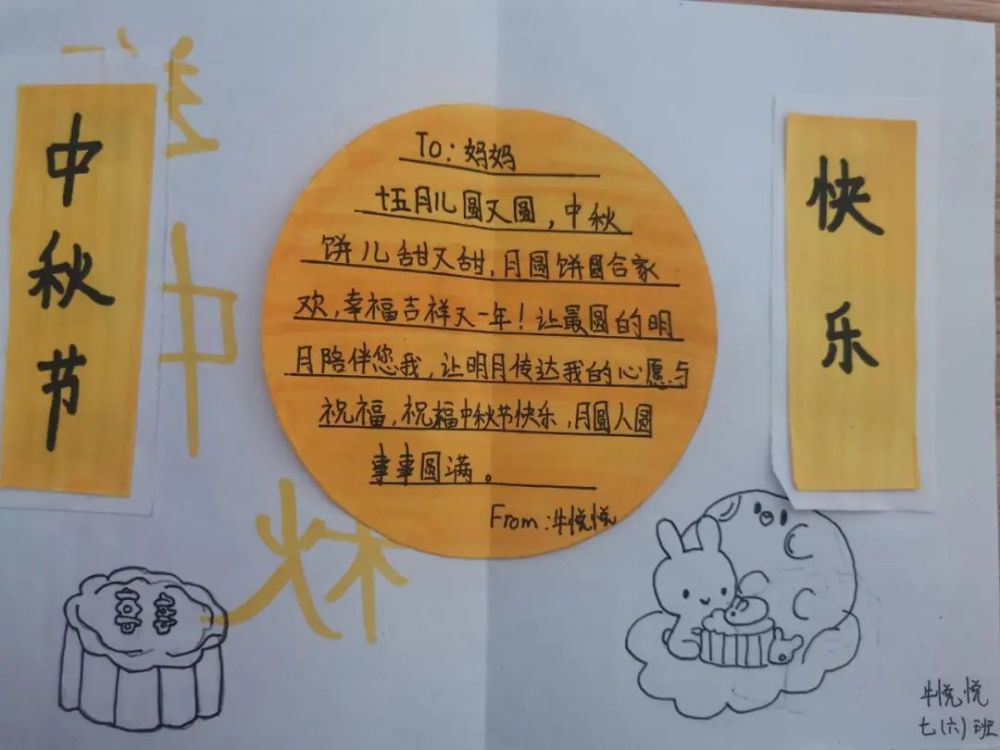 中秋节
中
秋
To:妈妈
十五月儿圆又圆,中秋
饼儿甜又甜,月圆饼圆合家
欢,幸福吉祥又一年!让最圆的明
月陪伴您我,让明月传达我的心愿与
祝福,祝福中秋节快乐,月圆人圆
事事圆满。
From:牛悦悦
快乐
牛悦悦
七(六)班